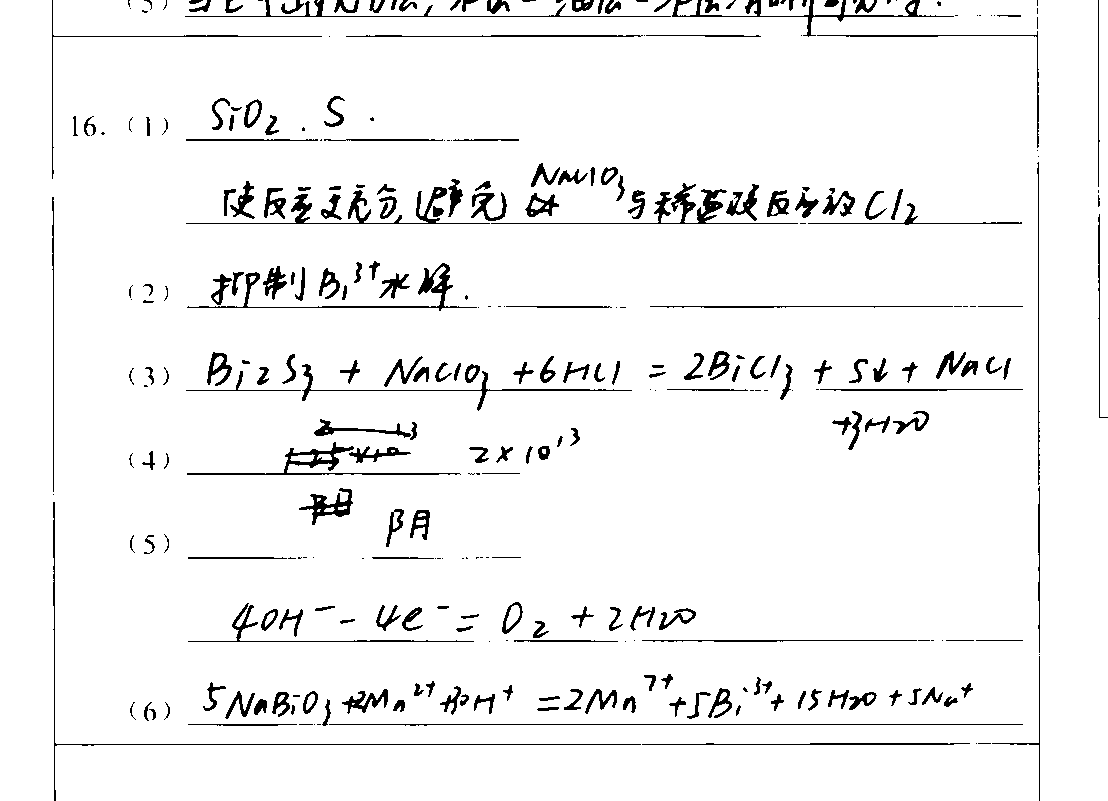 16. (1) SiO₂ . S .
使反应更充分, 避免 NaClO₃ 与稀盐酸反应放 Cl₂
(2) 抑制 Bi³⁺ 水解 .
(3) Bi₂S₃ + NaClO₃ + 6HCl = 2BiCl₃ + S↓ + NaCl
+3H₂O
(4) 2×10¹³
(5) 阴
4OH⁻ - 4e⁻ = O₂ + 2H₂O
(6) 5NaBiO₃ + 2Mn²⁺ + 30H⁺ = 2Mn⁷⁺ + 5Bi³⁺ + 15H₂O + 5Na⁺